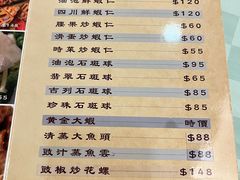 油泡鮮蝦仁 $120
四川鮮蝦仁 $120
腰果炒蝦仁 $60
清蒸炒蝦仁 $60
時菜炒蝦仁 $55
油泡石斑球 $95
翡翠石斑球 $65
古列石斑球 $65
珍珠石斑球 $65
黃金大蝦 時價
清蒸大魚頭 $88
豉汁蒸魚雲 $88
豉椒炒花螺 $148